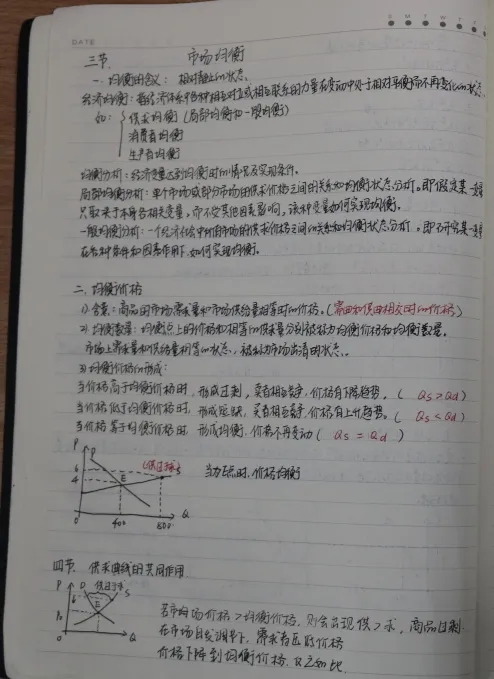 DATE
S M T W T F
三节、 市场均衡
一、均衡的含义: 相对静止的状态。
经济均衡: 指经济体系中各种相互对立或相互联系的力量在变动中处于相对平衡而不再变化的状态
如: 供求均衡 (局部均衡和一般均衡)
消费者均衡
生产者均衡
均衡分析: 经济变量达到均衡时的情况及实现条件。
局部均衡分析: 单个市场或部分市场的供求价格之间的关系和均衡状态分析。即假定某一
只取决于本身各相关变量, 而不受其他因素影响, 该种变量如何实现均衡。
一般均衡分析: 一个经济社会中所有市场的供求价格之间的关系和均衡状态分析。即研究某一
在各种条件和因素作用下, 如何实现均衡。
二、均衡价格
1) 含义: 商品的市场需求量和市场供给量相等时的价格。(需曲和供曲相交时的价格)
2) 均衡数量: 均衡点上的价格和相等的供求量分别被称为均衡价格和均衡数量。
市场上需求量和供给量相等的状态, 被称为市场出清的状态。
3) 均衡价格的形成:
当价格高于均衡价格时, 形成过剩, 卖者相互竞争, 价格有下降趋势。( Qs > Qd )
当价格低于均衡价格时, 形成短缺, 买者相互竞争, 价格有上升趋势。( Qs < Qd )
当价格等于均衡价格时, 形成均衡, 价格不再变动 ( Qs = Qd )
P
D
(供过于求)
S
6
4
E
0 400 800 Q
当在E点时, 价格均衡
四节、供求曲线的共同作用
P D 供过于求 S
E
P₀
0 Q
若市场价格 > 均衡价格, 则会出现供 > 求, 商品过剩
在市场自发调节下, 需求者压低价格
价格下降到均衡价格, 反之如此.